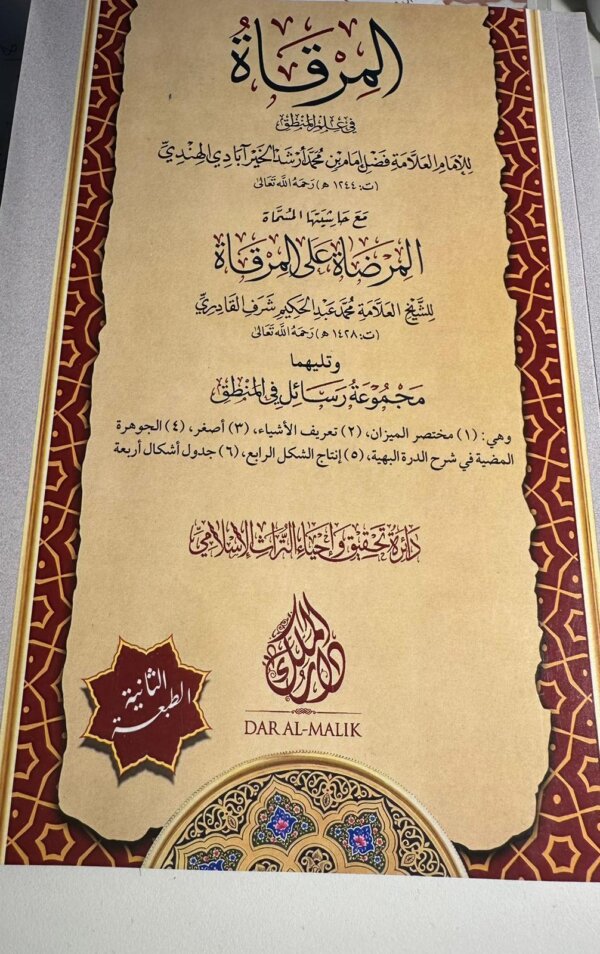 المِرْقَاةُ
في علم المنطق
للإمام العلامة فضل إمام بن محمد أرشد الخير آبادي الهندي
(ت: ١٢٤٤ هـ) رحمه الله تعالى
مع حاشيتها المسماة
المرضاة على المرقاة
للشيخ العلامة محمد عبد الحكيم شرف القادري
(ت: ١٤٢٨ هـ) رحمه الله تعالى
وتليهما
مجموعة رسائل في المنطق
وهي: (١) مختصر الميزان، (٢) تعريف الأشياء، (٣) أصغر، (٤) الجوهرة
المضية في شرح الدرة البهية، (٥) إنتاج الشكل الرابع، (٦) جدول أشكال أربعة
دائرة تحقيق وإحياء التراث الإسلامي
دار الملك
DAR AL-MALIK
الطبعة
الثانية